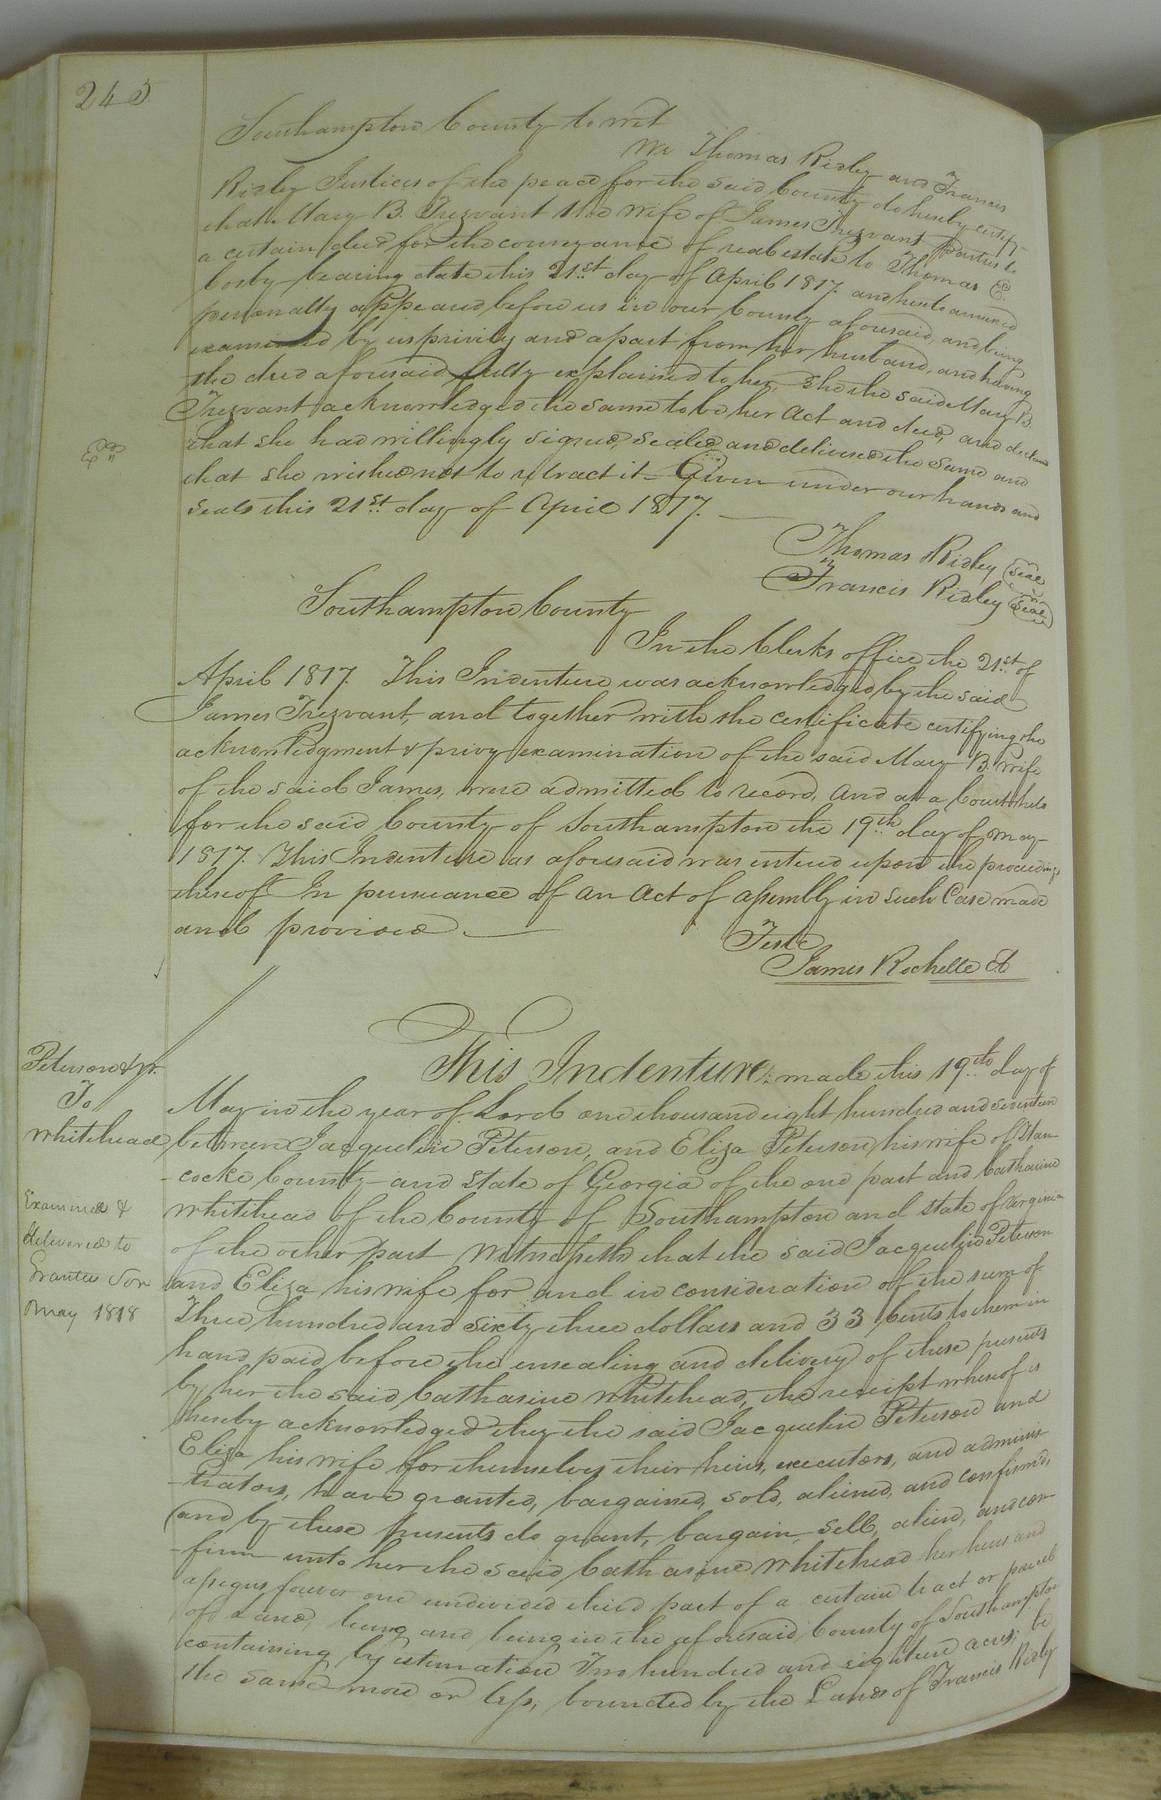 245
Southampton County to wit
We Thomas Ridley and Francis
Ridley Justices of the peace for the said County do hereby certify
that Mary B. Trezvant the wife of James Trezvant parties to
a certain deed for the conveyance of real estate to Thomas E.
bearing date this 21st day of April 1817. and hereto annexed
personally appeared before us in our County aforesaid, and being
examined by us privily and apart from her husband, and having
the deed aforesaid fully explained to her, she the said Mary B.
Trezvant acknowledged the same to be her Act and deed, and declared
that she had willingly signed, sealed and delivered the same and
that she wished not to retract it - Given under our hands and
seals this 21st day of April 1817.
Thomas Ridley (Seal)
Francis Ridley (Seal)
Southampton County
In the Clerks office the 21st of
April 1817. This Indenture was acknowledged by the said
James Trezvant, and together with the certificate certifying the
acknowledgment & privy examination of the said Mary B. wife
of the said James, were admitted to record, And at a Court held
for the said County of Southampton the 19th day of May
1817. This Indenture as aforesaid was entered upon the proceedings
thereof In pursuance of an Act of assembly in such Case made
and provided.
Teste
James Rochelle Ct
Peterson & Ux.
To
Whitehead
Examined &
delivered to
Grantees Son
May 1818
This Indenture, made this 19th day of
May in the year of Lord one thousand eight hundred and seventeen
between Jacquelin Peterson, and Eliza Peterson his wife of Han-
-cocke County and State of Georgia of the one part and Catharine
Whitehead of the County of Southampton and state of Virginia
of the other part Witnesseth that the said Jacquelin Peterson
and Eliza his wife for and in consideration of the sum of
Three hundred and sixty three dollars and 33 Cents to them in
hand paid before the ensealing and delivery of these presents
by her the said Catharine Whitehead, the receipt whereof is
hereby acknowledged they the said Jacquelin Peterson and
Eliza his wife for themselves their heirs, executors, and adminis-
-trators, have granted, bargained, sold, aliened, and confirmed,
(and by these presents do grant, bargain, sell, alien, and con-
-firm unto her the said Catharine Whitehead her heirs and
assigns forever one undivided third part of a certain tract or parcel
of Land, being and being in the aforesaid County of Southampton
containing by estimation Two hundred and eighteen acres, be
the same more or less, bounded by the Lands of Francis Ridley